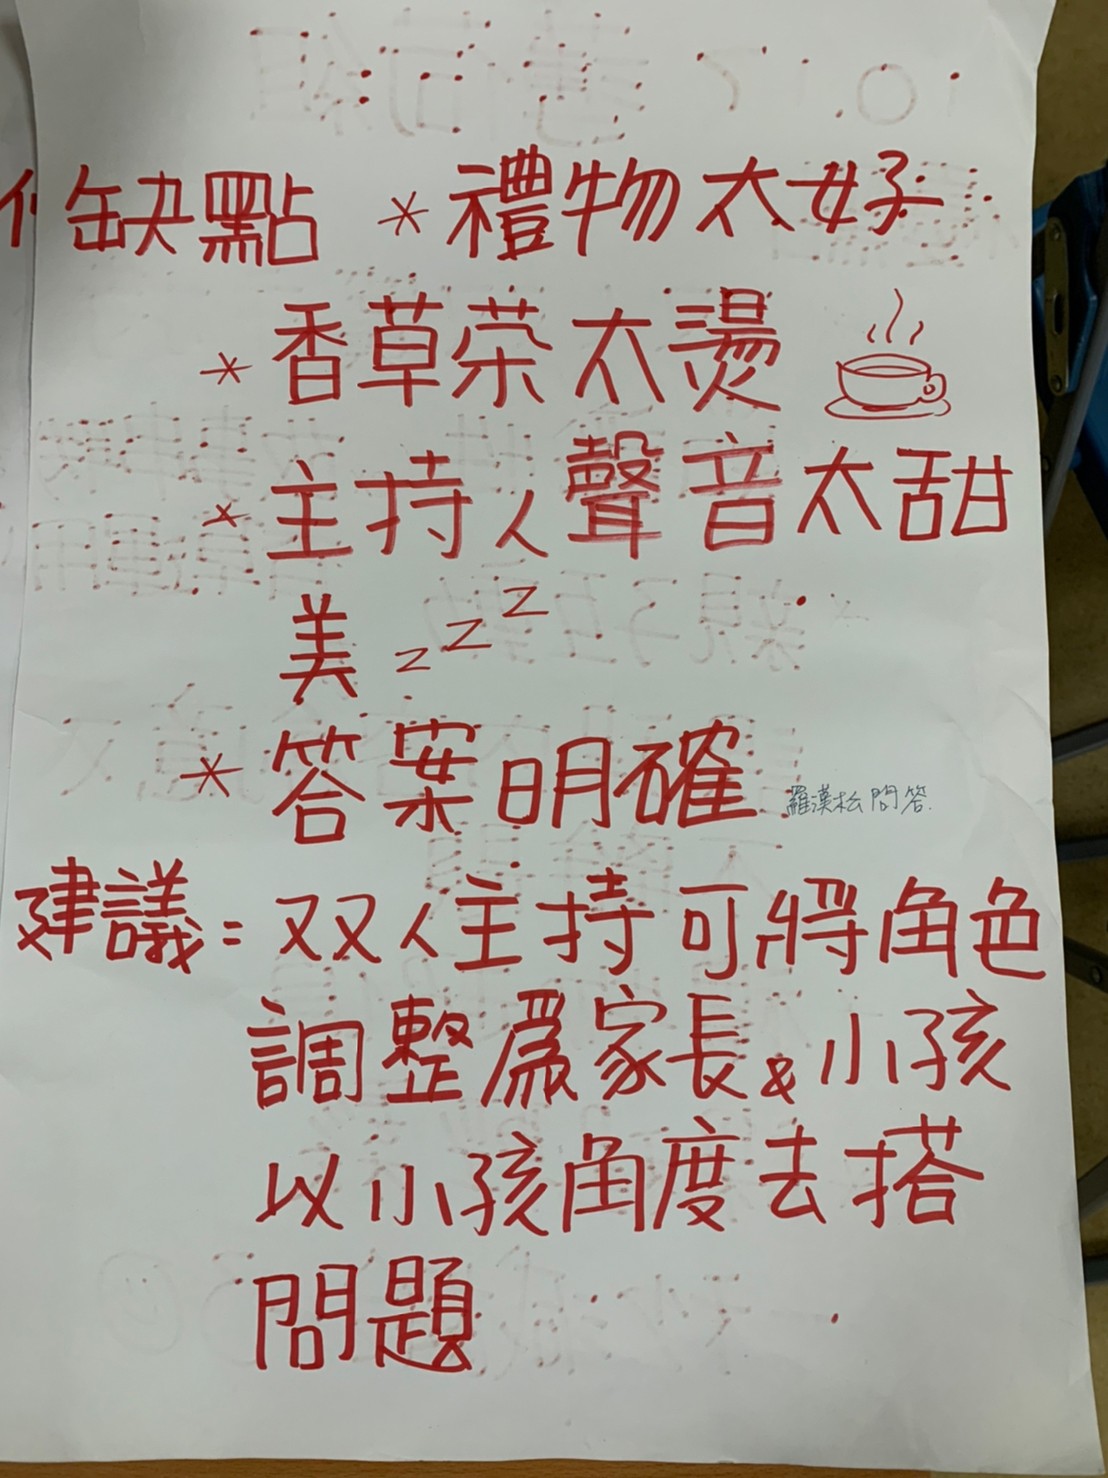 缺點 * 禮物太好
* 香草茶太燙
* 主持人聲音太甜
美 z z z
* 答案明確 羅漢松問答.
建議: 双人主持可將角色
調整為家長&小孩
以小孩角度去搭
問題